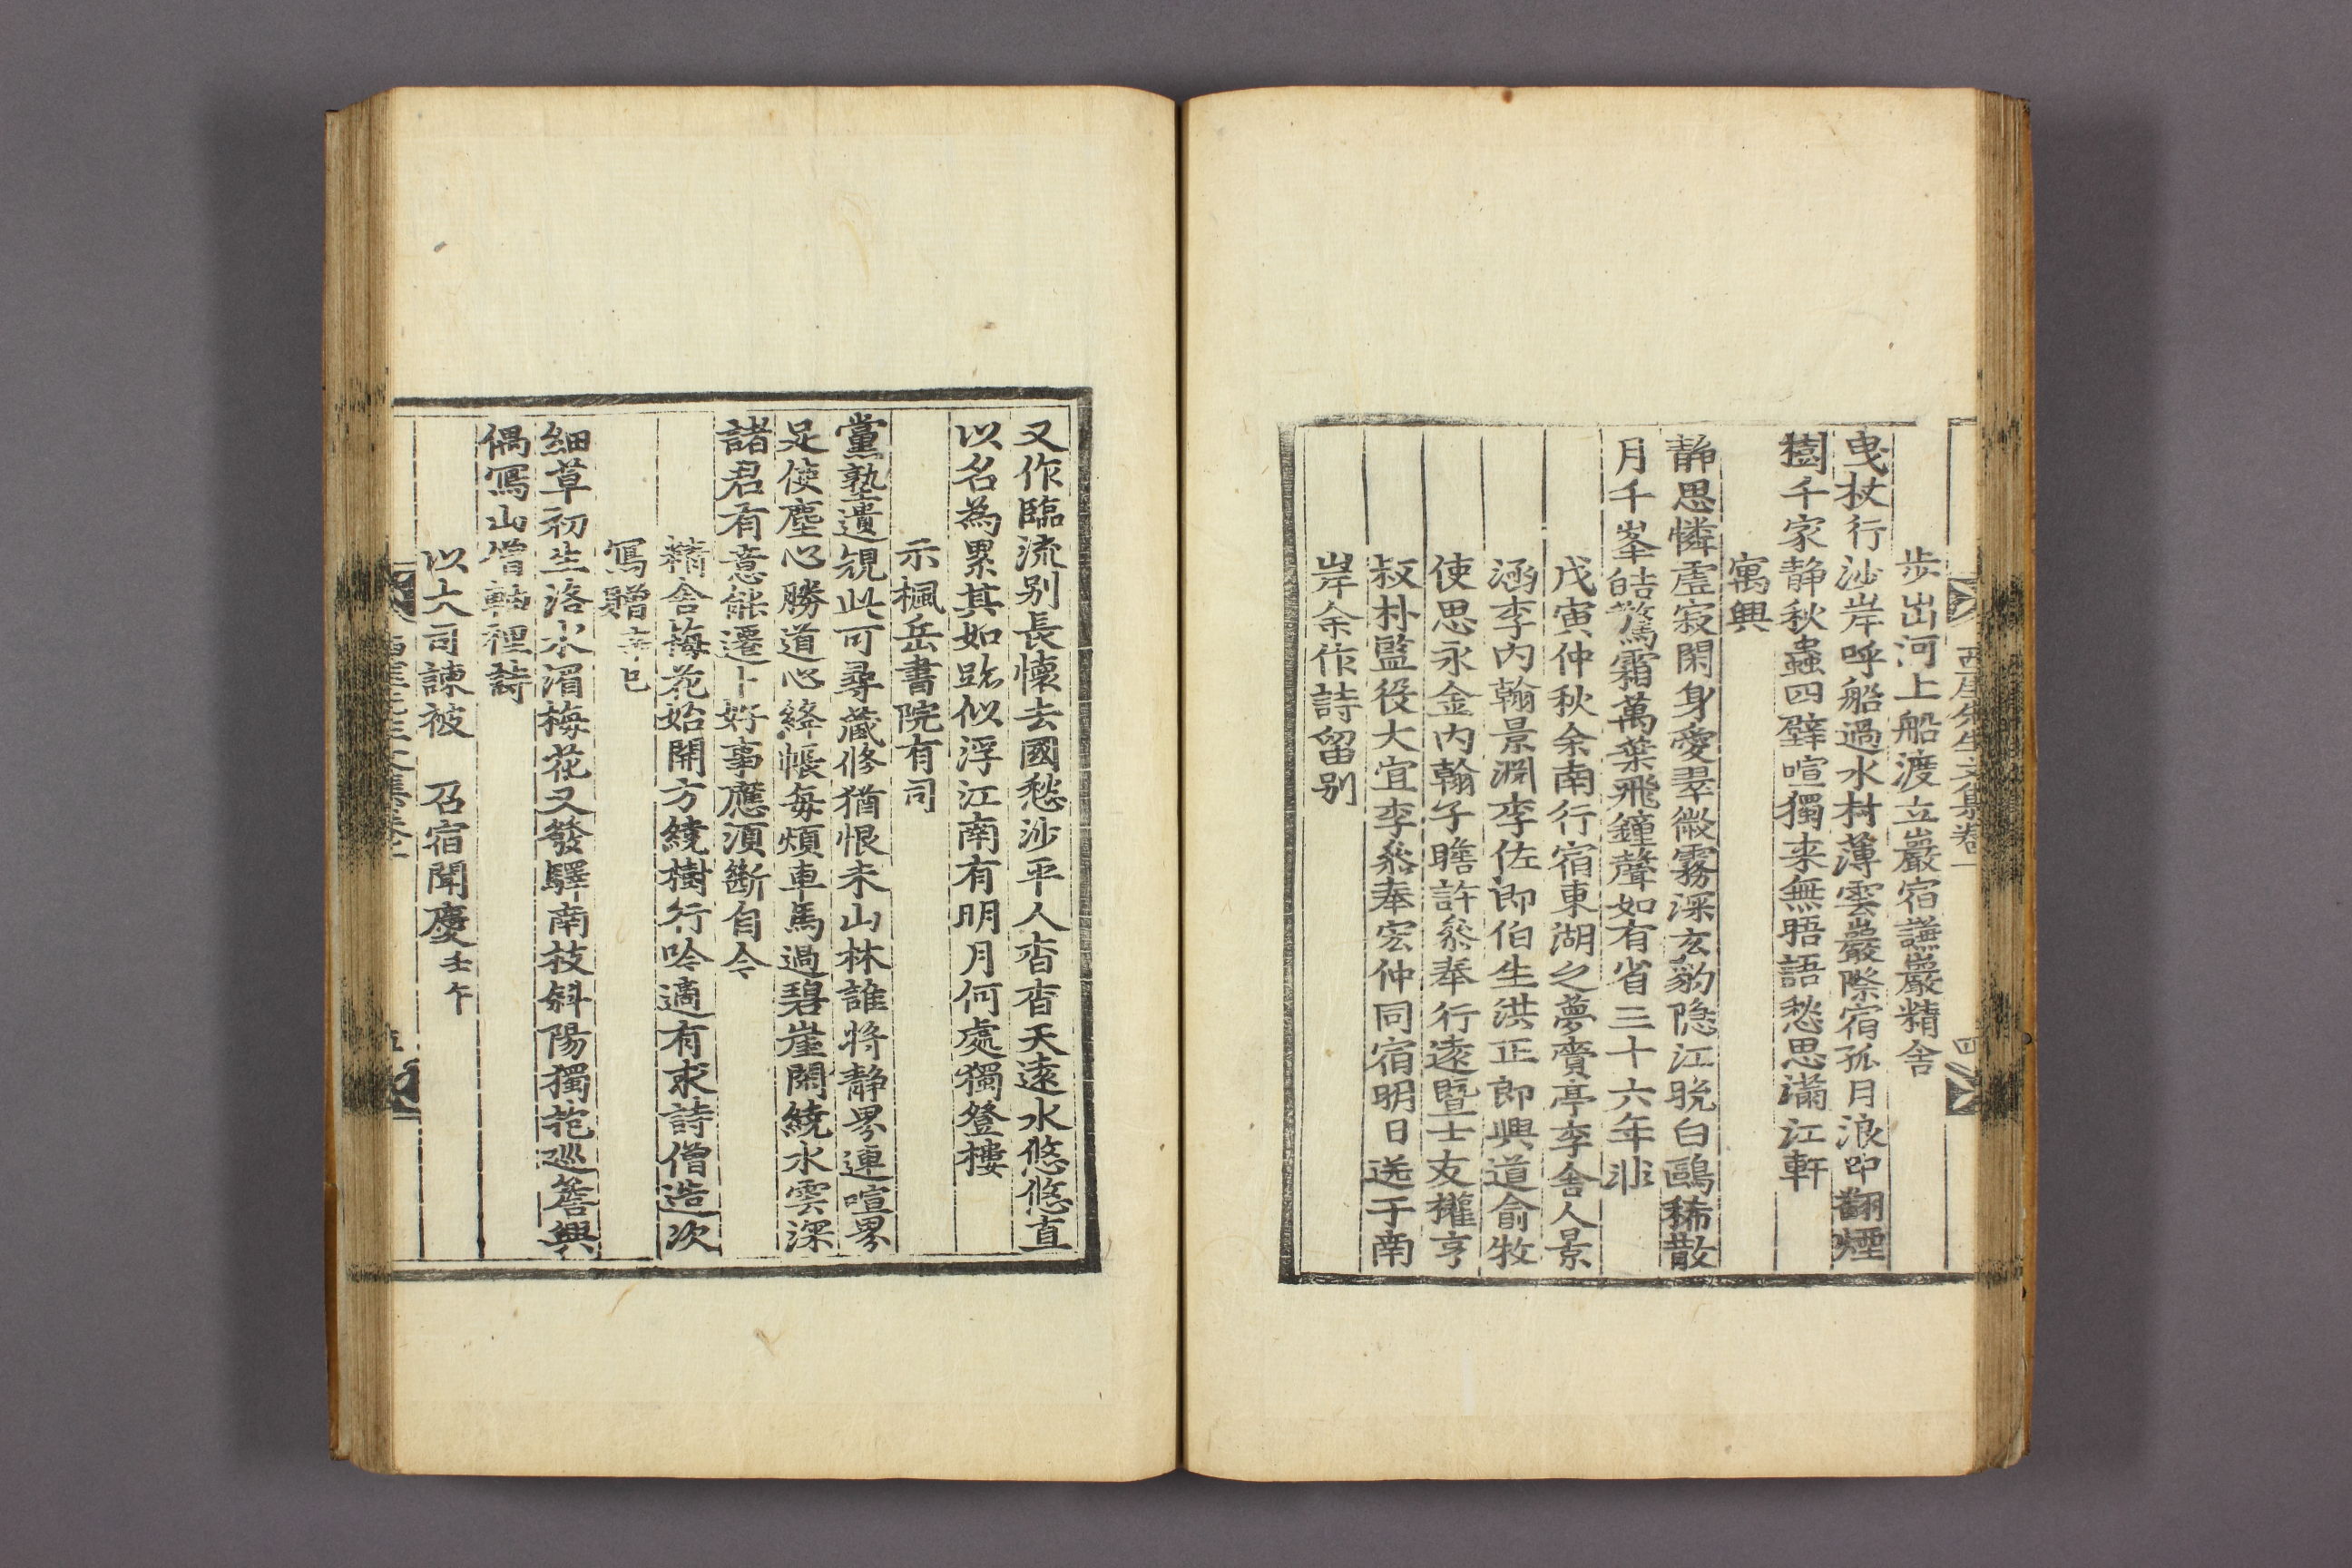 西厓先生文集卷一
四
步出河上船渡立巖宿謙巖精舍
曳杖行沙岸呼船過水村薄雲巖際宿孤月浪中翻煙
樹千家静秋蟲四壁喧獨来無晤語愁思滿江軒
寓興
静思憐虛寂閑身愛翠微霧深玄豹隐江晩白鷗稀散
月千峯皓驚霜萬葉飛鐘聲如有省三十六年非
戊寅仲秋余南行宿東湖之夢賚亭李舍人景
涵李內翰景淵李佐郎伯生洪正郎興道俞牧
使思永金內翰子瞻許叅奉行遠暨士友權亨
叔朴監役大宜李叅奉宏仲同宿明日送于南
岸余作詩留别
又作臨流别長懷去國愁沙平人杳杳天遠水悠悠直
以名為累其如跡似浮江南有明月何處獨登樓
示楓岳書院有司
黨塾遺規此可尋藏修猶恨未山林誰將静界連喧界
足使塵心勝道心絳帳每煩車馬過碧崖閑繞水雲深
諸君有意能遷卜好事應須斷自今
精舍梅花始開方繞樹行吟適有求詩僧造次
寫贈辛巳
細草初生洛水湄梅花又發驛南枝斜陽獨花巡簷興
偶寫山僧軸裡詩
以大司諫被 召宿聞慶壬午
西厓先生文集卷一
五